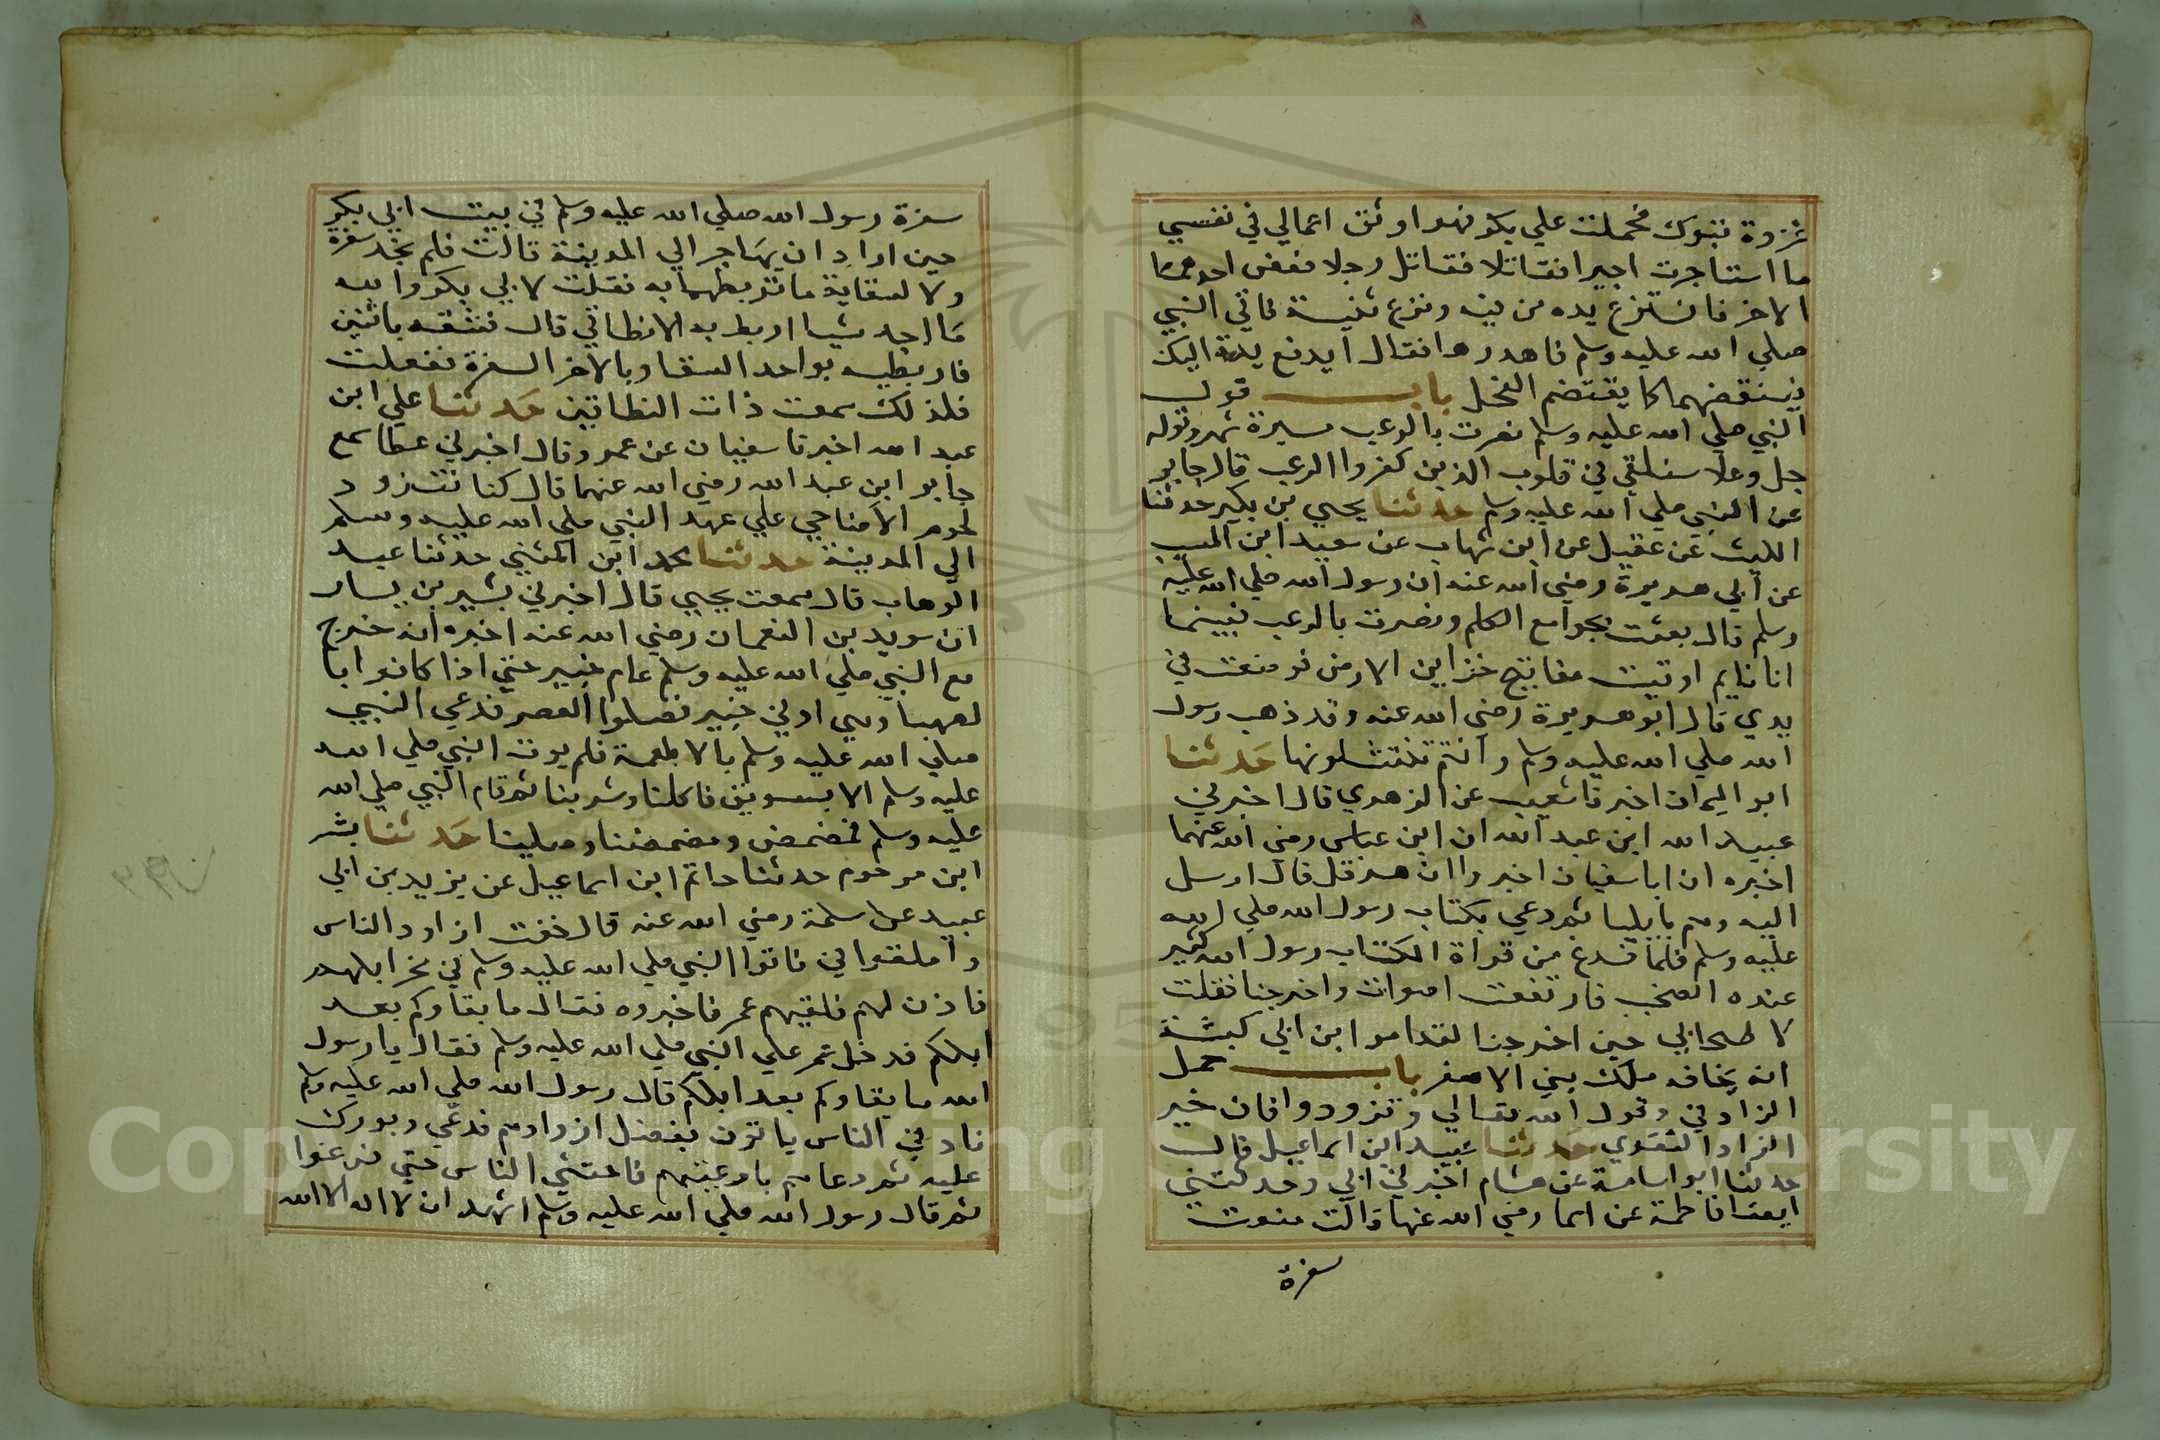 غزوة تبوك فحملت علي بكر فهو اوثق اعمالي في نفسي
ما استاجرت اجيرا فقاتل رجلا فعض احدهما
الاخر فانتزع يده من فيه ونزع ثنيته فاتي النبي
صلي الله عليه وسلم فاهدرها فقال ايدفع يده اليك
فينقضمها كما يقتضم الفحل باب قول
النبي صلي الله عليه وسلم نصرت بالرعب مسيرة شهر وقوله
جل وعلا سنلقي في قلوب الذين كفروا الرعب قال جابر
عن النبي صلي الله عليه وسلم حدثنا يحيي بن بكير حدثنا
الليث عن عقيل عن ابن شهاب عن سعيد ابن المسيب
عن ابي هريرة رضي الله عنه ان رسول الله صلي الله عليه
وسلم قال بعثت بجوامع الكلم ونصرت بالرعب فبينما
انا نايم اوتيت مفاتيح خزاين الارض فوضعت في
يدي قال ابو هريرة رضي الله عنه وقد ذهب رسول
الله صلي الله عليه وسلم وانتم تنتثلونها حدثنا
ابو اليمان اخبرنا شعيب عن الزهري قال اخبرني
عبيد الله ابن عبد الله ان ابن عباس رضي الله عنهما
اخبره ان ابا سفيان اخبره ان هرقل قال ارسل
اليه وهم بايليا ثم دعي بكتاب رسول الله صلي الله
عليه وسلم فلما فرغ من قراة الكتاب رسول الله كثير
عنده الصخب فارتفعت اصوات واخرجنا فقلت
لاصحابي حين اخرجنا لقد امر ابن ابي كبشة
انه يخافه ملك بني الاصفر باب حمل
الزاد في وقول الله تعالي وتزودوا فان خير
الزاد التقوي حدثنا عبيد ابن اسماعيل قال
حدثنا ابو اسامة عن هشام اخبرني ابي وحدثتني
ايضا فاطمة عن اسما رضي الله عنها قالت صنعت
سفرة
سفرة رسول الله صلي الله عليه وسلم في بيت ابي بكر
حين اراد ان يهاجر الي المدينة قالت فلم نجد سفرة
ولا لسقاية ما نربطهما به فقلت لابي بكر والله
ما اجد شيا اربط به الا نطاقي قال فشقه باثنين
فاربطيه بواحد السقا وبالاخر السفرة ففعلت
فلذلك سمعت ذات النطاقين حدثنا علي ابن
عبد الله اخبرنا سفيان عن عمرو قال اخبرني عطا سمع
جابر ابن عبد الله رضي الله عنهما قال كنا نتزود
لحوم الاضاحي علي عهد النبي صلي الله عليه وسلم
الي المدينة حدثنا محمد ابن المثني حدثنا عبد
الوهاب قال سمعت يحيي قال اخبرني بشير بن يسار
ان سويد بن النعمان رضي الله عنه اخبره انه خرج
مع النبي صلي الله عليه وسلم عام خيبر حتي اذا كانوا با
لصهبا وهي ادني خيبر فصلوا العصر فدعي النبي
صلي الله عليه وسلم بالاطعمة فلم يوت النبي صلي الله
عليه وسلم الا بسويق فاكلنا وشربنا ثم قام النبي صلي الله
عليه وسلم فمضمض ومضمضنا وصلينا حدثنا بشر
ابن مرحوم حدثنا حاتم ابن اسماعيل عن يزيد بن ابي
عبيد عن سلمة رضي الله عنه قال خفت ازاود الناس
واملقوا في فاتوا النبي صلي الله عليه وسلم في نحر ابلهم
فاذن لهم فلقيهم عمر فاخبروه فقال ما بقاوكم بعد
ابلكم فدخل عمر علي النبي صلي الله عليه وسلم فقال يا رسول
الله ما بقاوكم بعد ابلكم قال رسول الله صلي الله عليه وسلم
ناد في الناس ياتون بفضل ازوادهم فدعي وبورك
عليه ثم دعاهم باوعيتهم فاحتثي الناس حتي فرغوا
ثم قال رسول الله صلي الله عليه وسلم اشهد ان لا اله الا الله